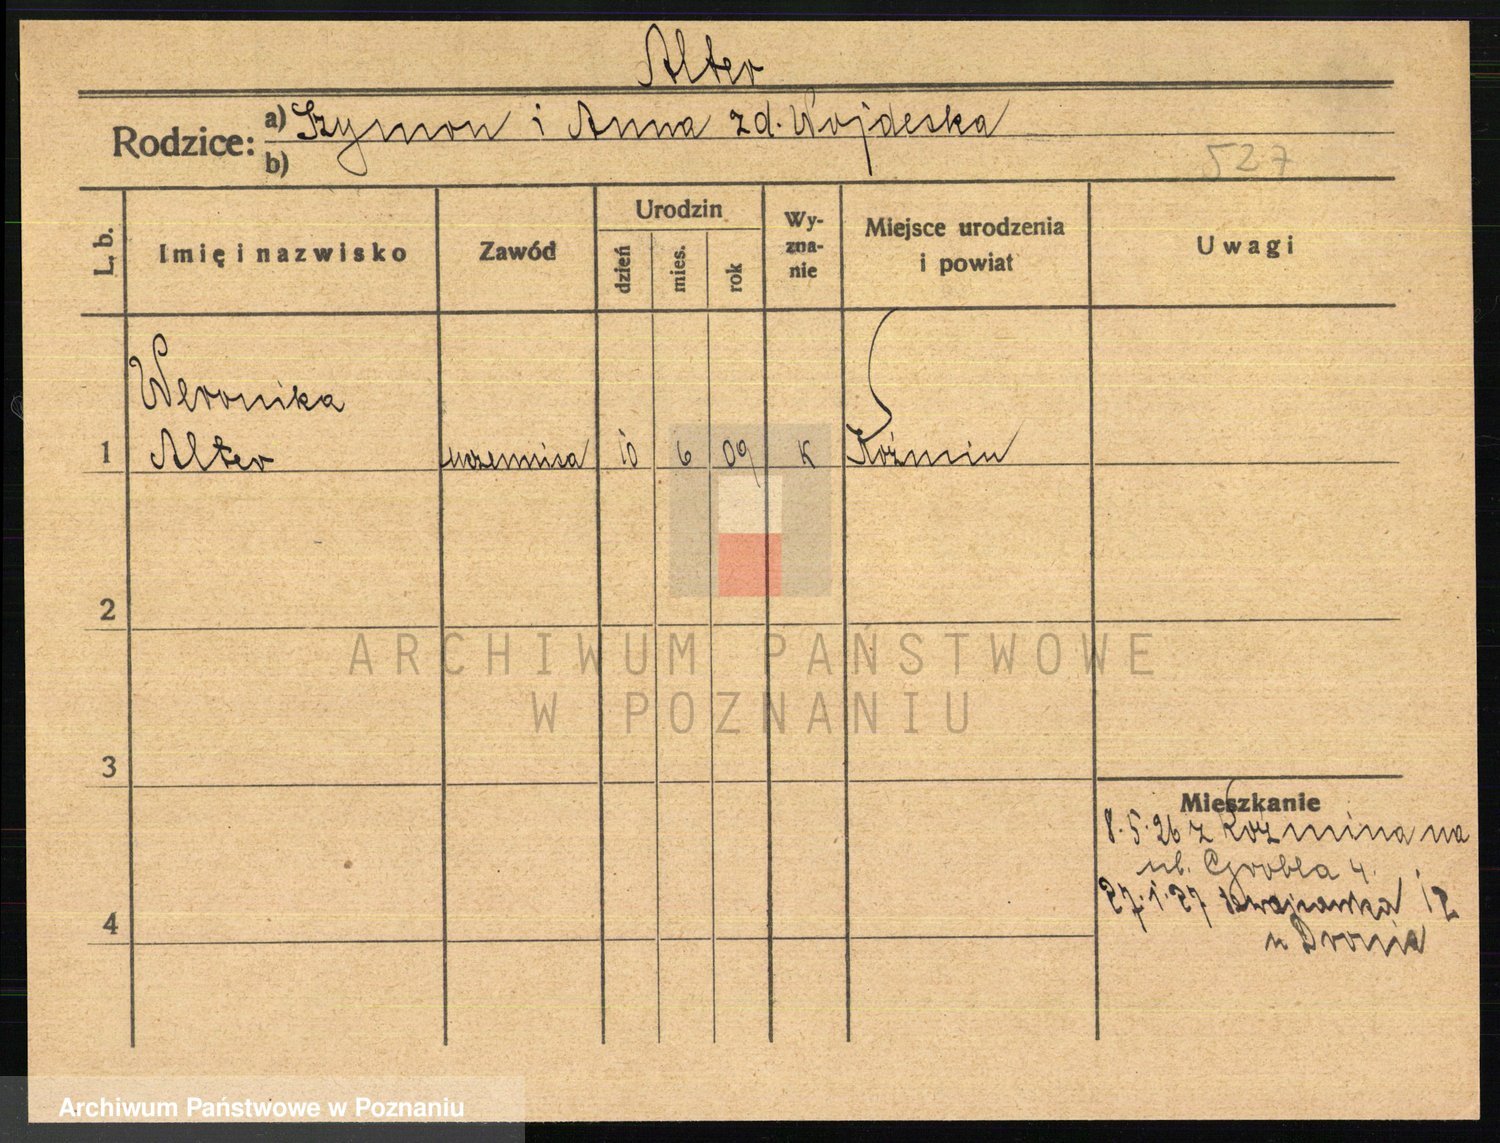 Alter
Rodzice: a) Szymon i Anna z d. Wojdeska
b)
527
L. b.
Imię i nazwisko
Zawód
Urodzin
dzień
mies.
rok
Wy-
zna-
nie
Miejsce urodzenia
i powiat
Uwagi
Weronika
1 Alter uczennica 10 6 09 K Koźmin
2
3
4
Mieszkanie
8.5.26 z Koźmina na
ul. Grobla 4.
27.1.27 12
u
ARCHIWUM PAŃSTWOWE
W POZNANIU
Archiwum Państwowe w Poznaniu